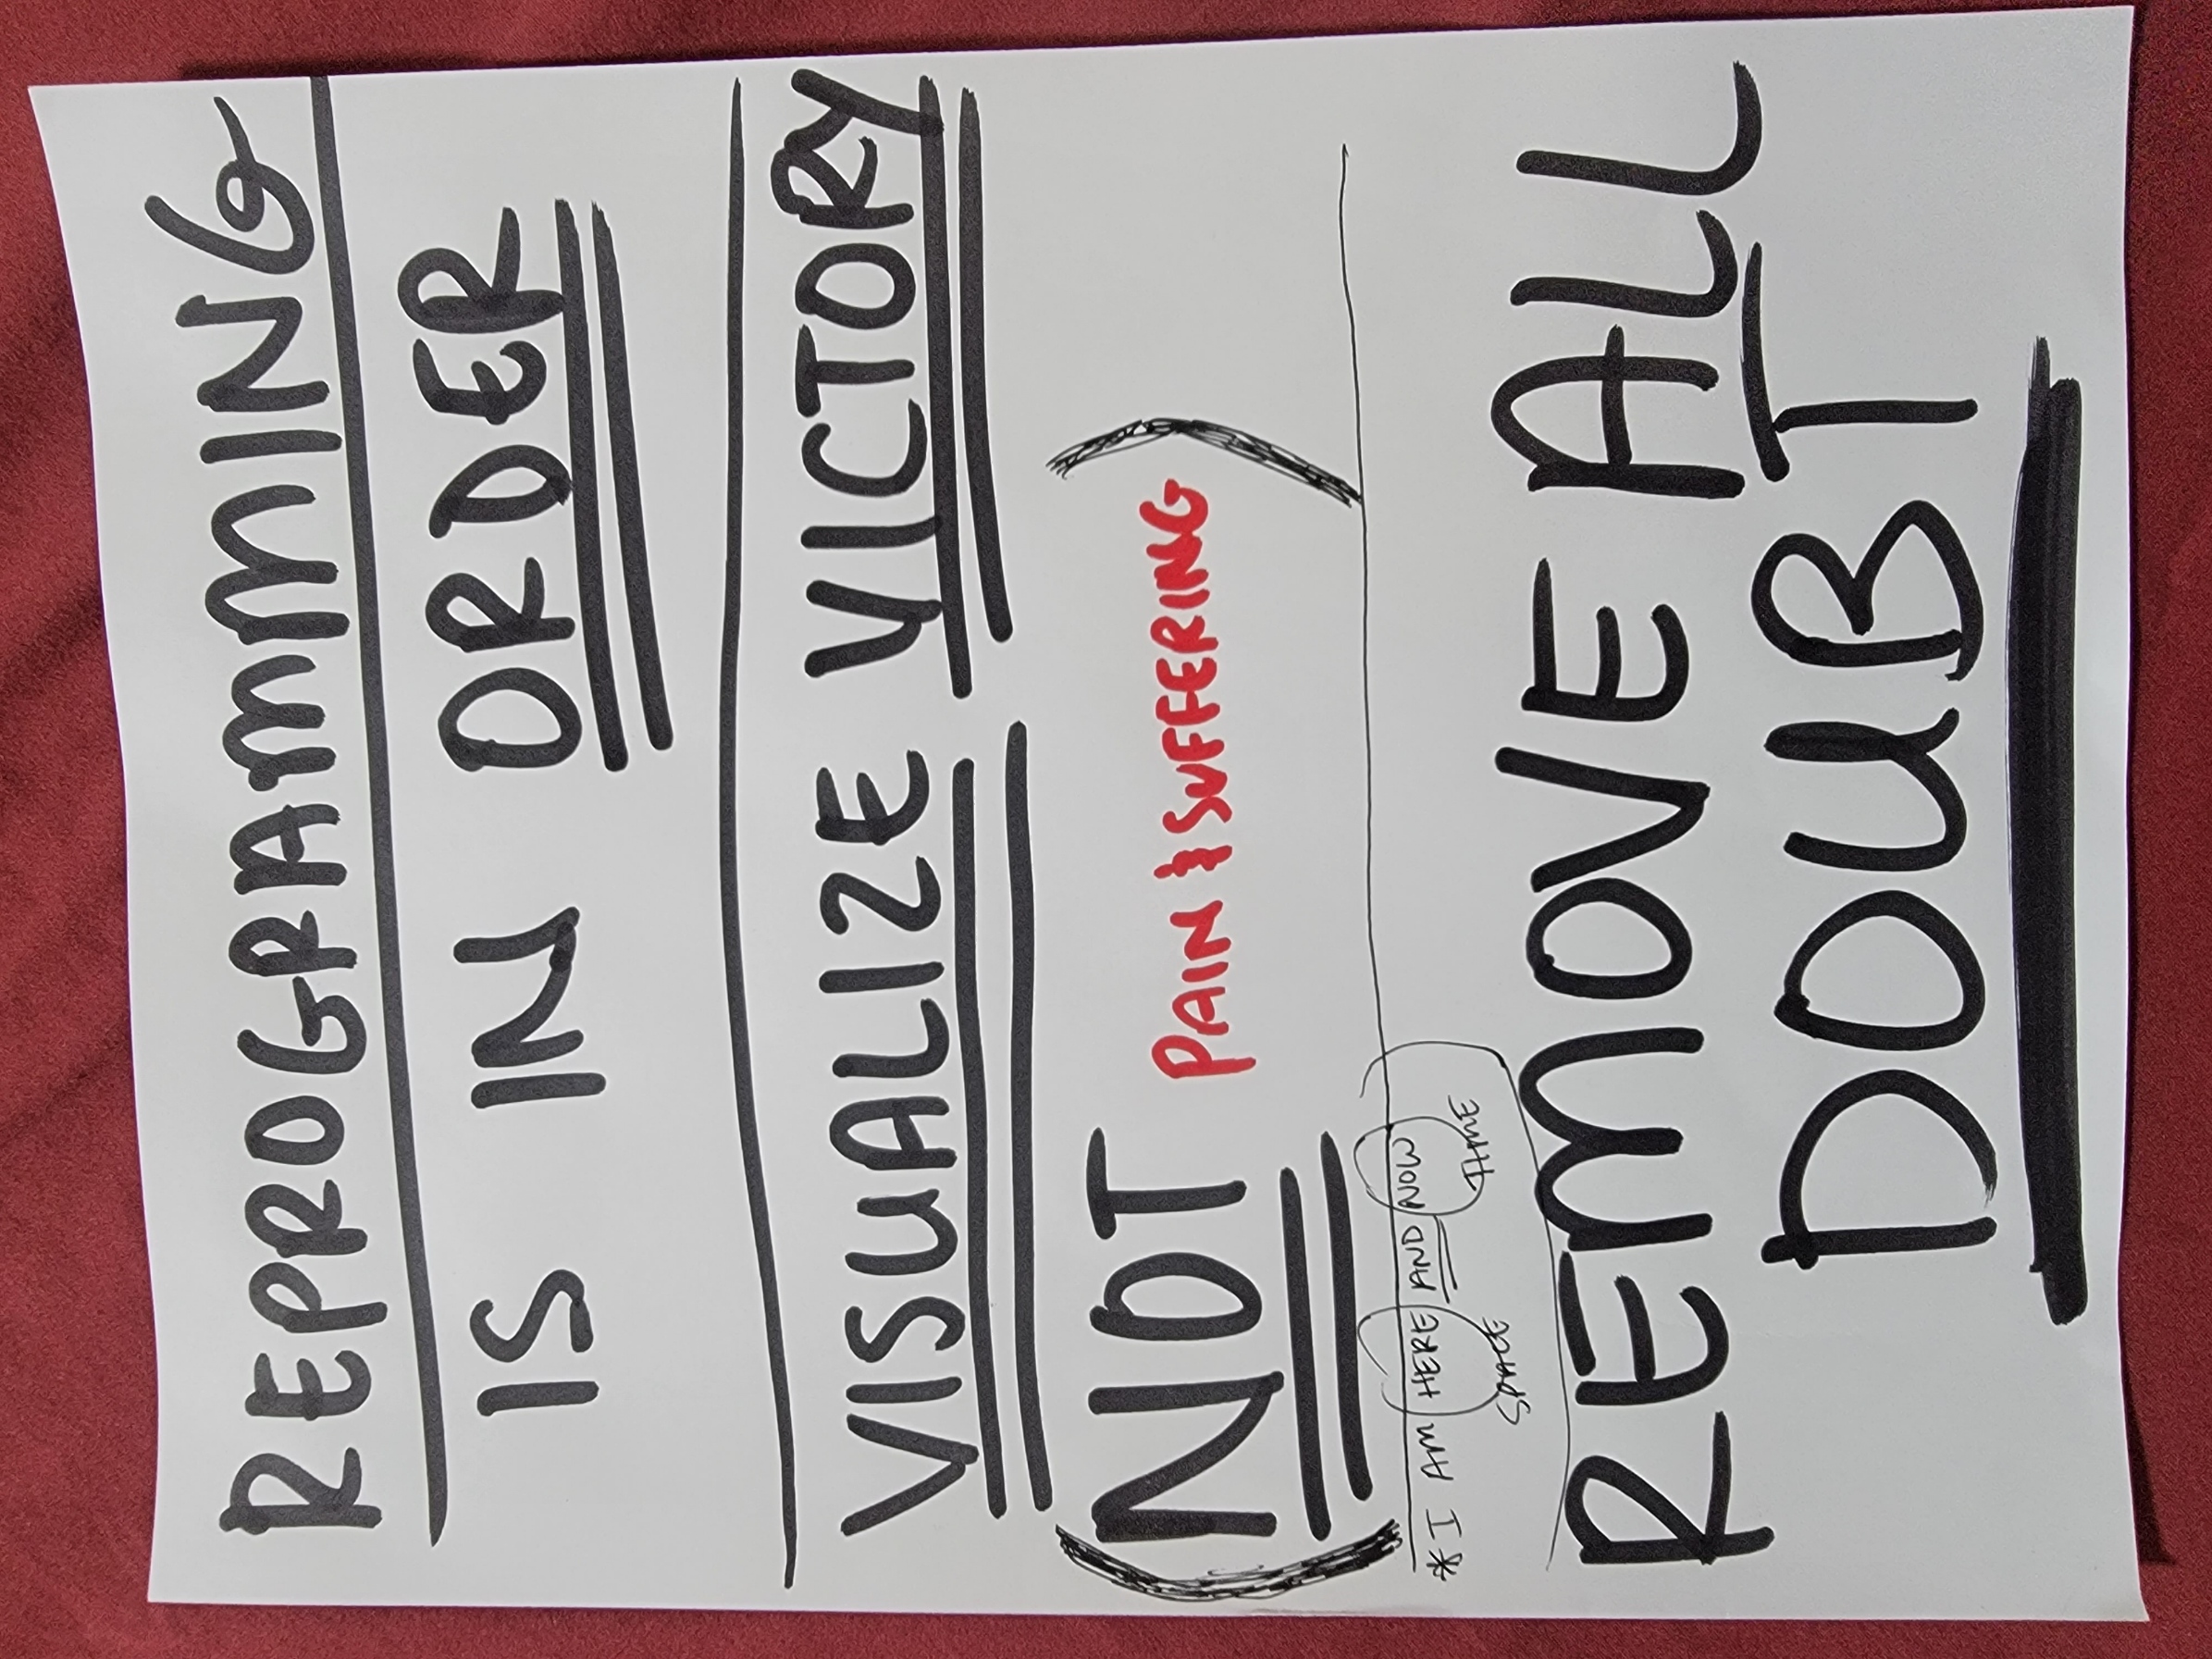 REPROGRAMMING
IS IN ORDER
VISUALIZE VICTORY
(NOT PAIN & SUFFERING)
*I AM HERE AND NOW
SPACE TIME
REMOVE ALL
DOUBT